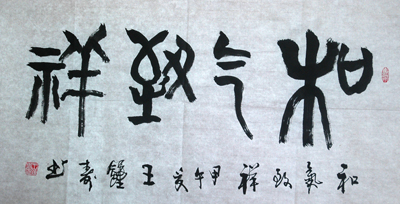 和气致祥
和氣致祥甲午夏王鐘寿书